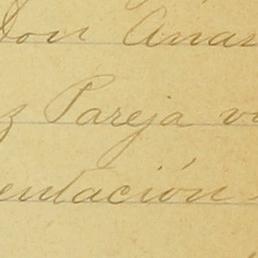 Don Anar
z Pareja v
entación